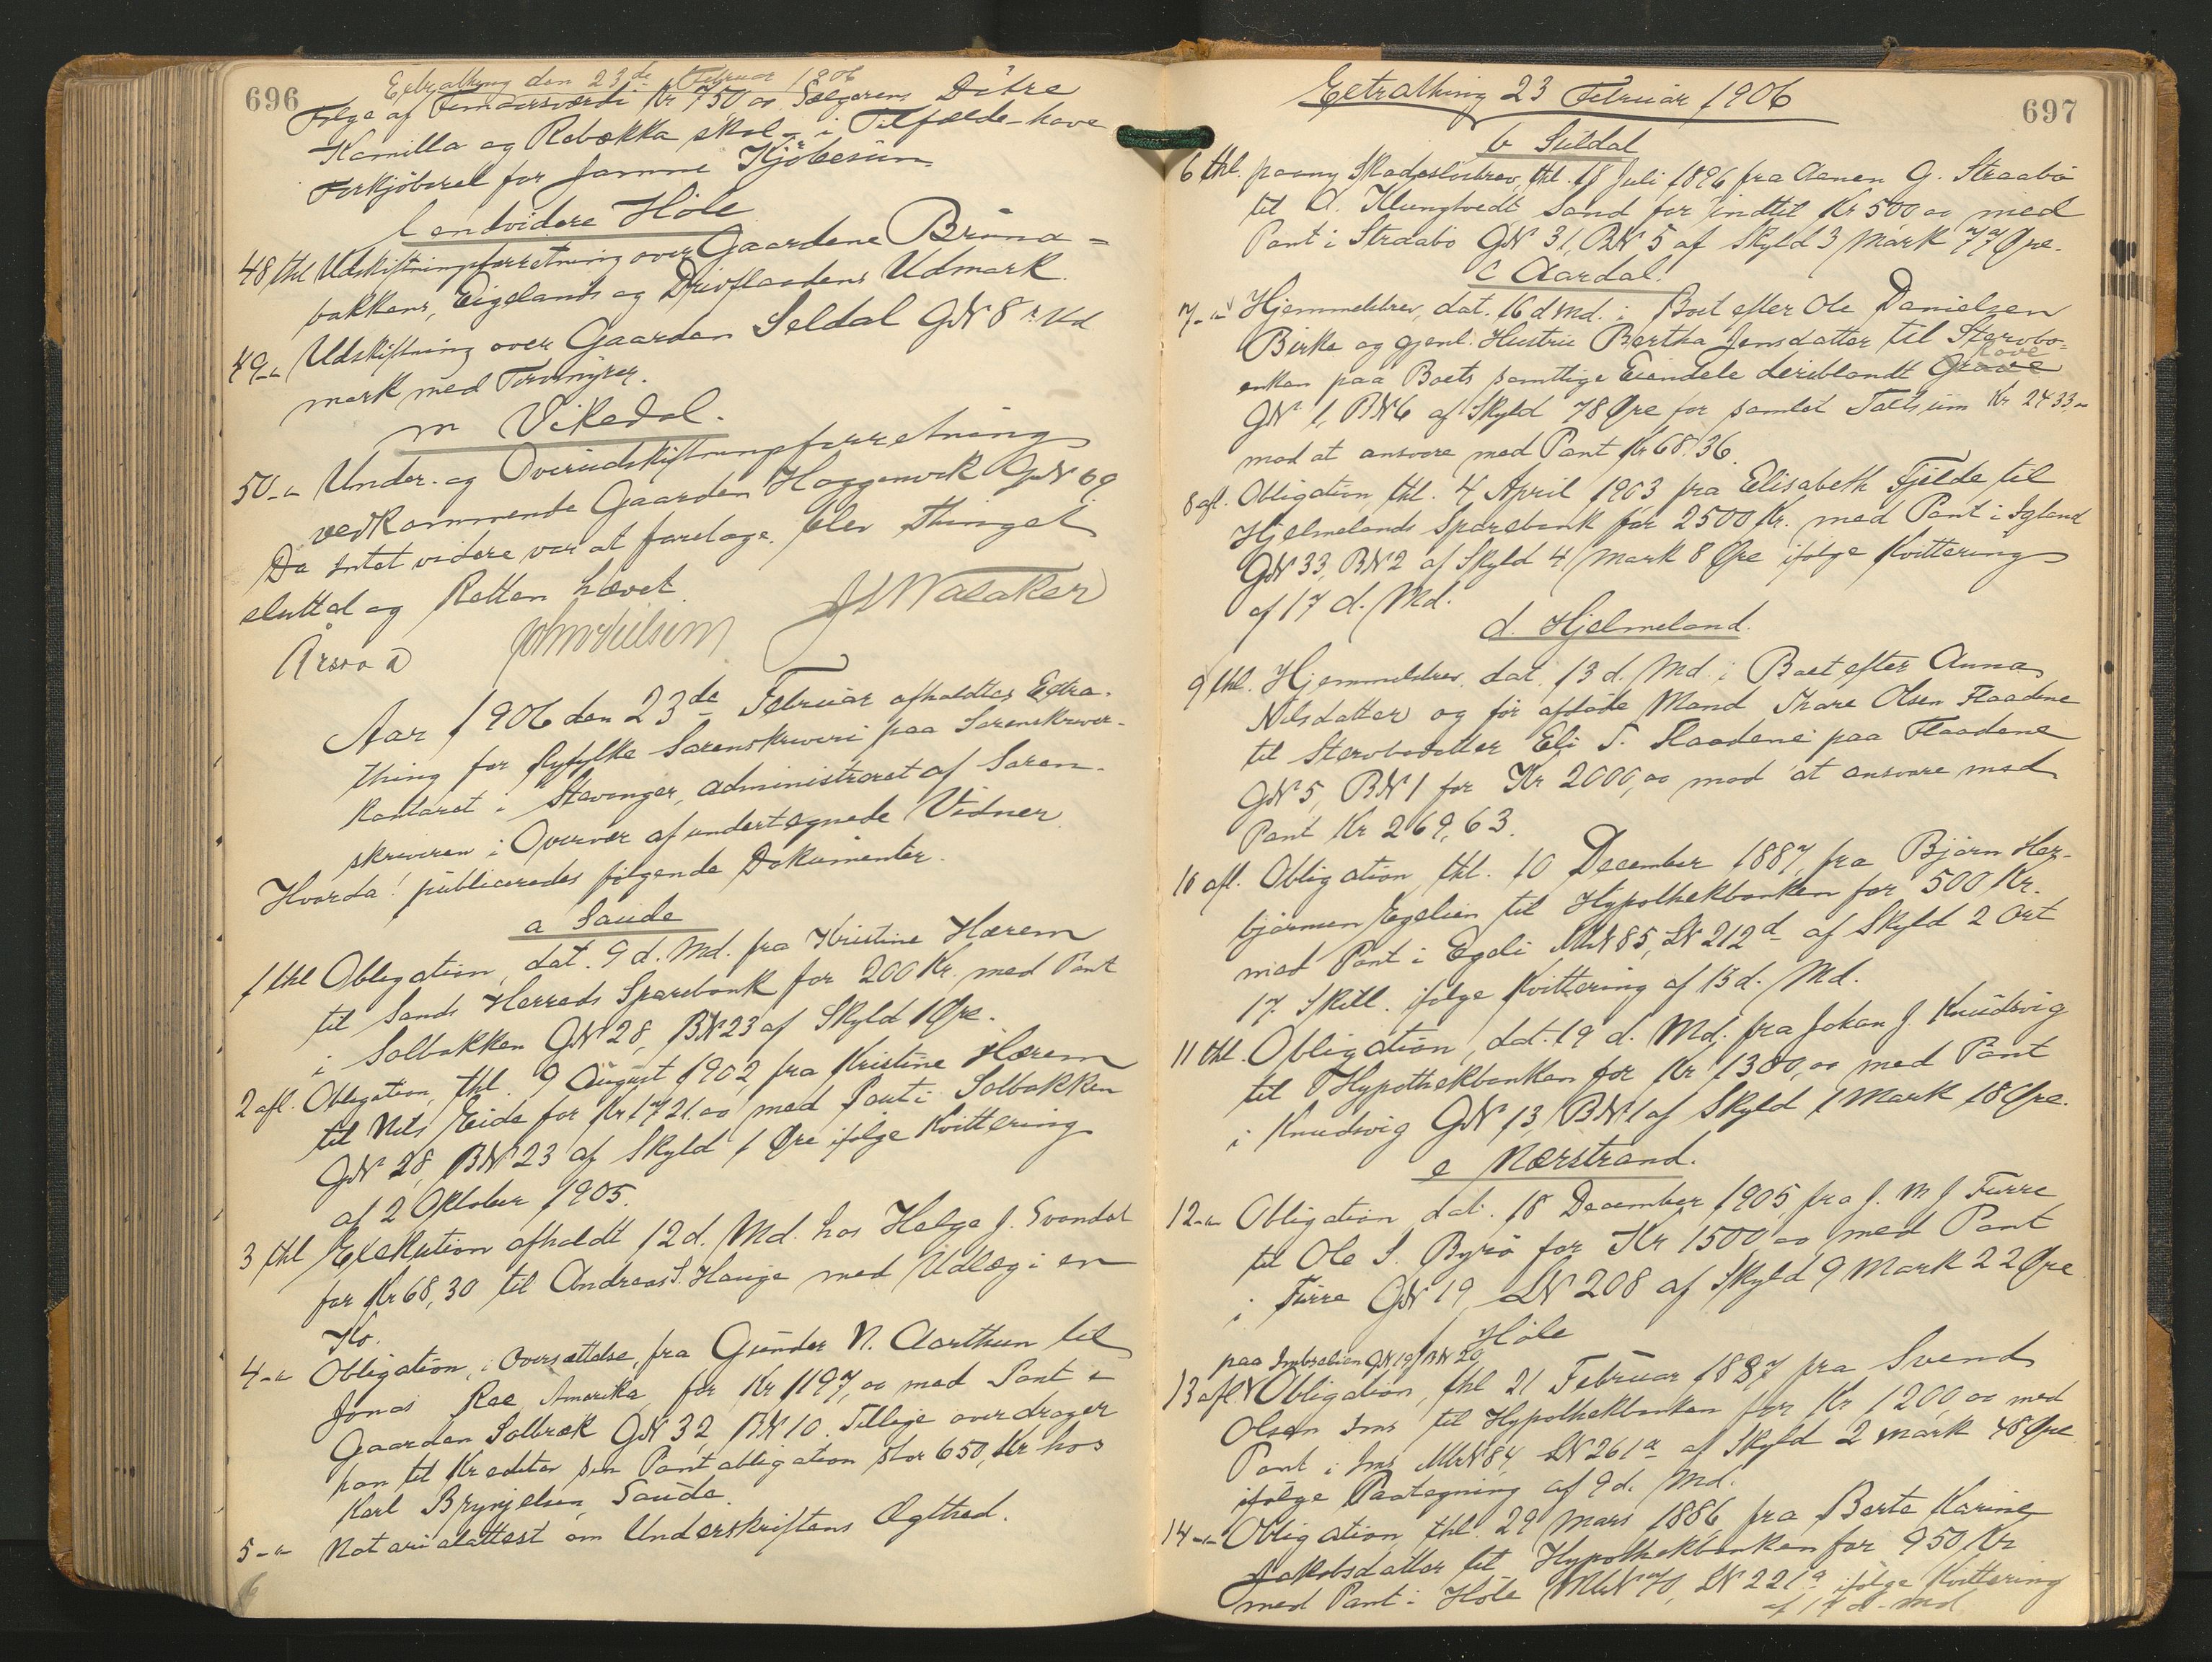 696
Extrathing den 23de Februar 1906
Følge af Femaarsværdi Kr 750 oo Sælgerens Døtre
Kamilla og Rebekka skal i Tilfælde have
Forkjöbsret for samme Kjöbesum
l endvidere Höle
48 thl Udskiftningsforretning over Gaardene Bruna-
bakkens, Eigelands og Drivflaadens Udmark.
49-"- Udskiftning over Gaarden Seldal GN 8's Ud
mark med Torvmyrer.
m Vikedal.
50-"- Under- og Overudskiftningsforretning
vedkommende Gaarden Haggenvik GN 69
Da Intet videre var at foretage, blev Thinget
sluttet og Retten hævet.
Aar 1906 den 23de Februar afholdtes Extra-
thing for Ryfylke Sorenskriveri paa Sorenskriver-
kontoret i Stavanger, administreret af Soren-
skriveren i Overvær af undertegnede Vidner.
Hvorda! publiceredes følgende Dokumenter.
a Saude
1 thl Obligation, dat. 9 d. Md. fra Kristine Hærem
til Sands Herreds Sparebank for 200 Kr. med Pant
i Solbakken GN 28, BN 23 af Skyld 1 Øre.
2 afl. Obligation, thl. 9 August 1902 fra Kristine Hærem
til Nils Eide for Kr 1721.oo med Pant i Solbakken
GN 28, BN 23 af Skyld 1 Øre ifølge Kvittering
af 2 Oktober 1905.
3 thl Exekution afholdt 12 d. Md. hos Helge J. Svandal
for Kr 68,30 til Andreas S. Hauge med Udlæg i en
Ko.
4-"- Obligation, i Oversættelse, fra Gunder N. Aarthun til
Jonas Roe, Amerika, for Kr 1197,oo med Pant i
Gaarden Solbræk GN 32, BN 10. Tillige overdrager
han til Kreditor sin Pantobligation stor 650, Kr hos
Karl Brynjelsen, Saude.
5-"- Notarialattest om Underskriftens Ægthed.
697
Extrathing 23 Februar 1906
b Suldal
6 thl. paany Skadesløsbrev, thl. 18 Juli 1896 fra Aanen G. Straabö
til O. Klungtvedt Sand for indtil Kr 500 oo med
Pant i Straabö GN 31, BN 5 af Skyld 3 Mark 77 Øre.
c Aardal.
7-"- Hjemmelsbrev, dat. 16 d Md. i Boet efter Ole Danielsen
Birke og gjenl. Hustru Bertha Jensdatter til Stervbo-
enken paa Boets samtlige Eiendele deriblandt
GN 1, BN 6 af Skyld 78 Øre for samlet Taktsum Kr 2433,-
mod at ansvare med Pant Kr 68.36.
8 afl. Obligation, thl. 4 April 1903 fra Elisabeth Fjelde til
Hjelmelands Sparebank for 2500 Kr. med Pant i Igland
GN 33, BN 2 af Skyld 4 Mark 8 Øre ifølge Kvittering
af 17 d. Md.
d. Hjelmeland.
9 thl. Hjemmelsbrev, dat. 13 d. Md. i Boet efter Anna
Nilsdatter og för afdöde Mand Thore Olsen Flaadene
til Stervbodatter Eli T. Flaadene paa Flaadene
GN 5, BN 1 for Kr 2000,oo mod at ansvare med
Pant Kr 269,63.
10 afl. Obligation, thl. 10 December 1887, fra Björn Her-
björnsen Egelien til Hypothekbanken for 500 Kr.
med Pant i Egeli MN 85, LN 212d af Skyld 2 Ort
17 Skill. ifølge Kvittering af 13 d. Md.
11 thl. Obligation, dat. 19 d. Md. fra Johan J. Knudsvig
til Hypothekbanken for Kr 1300,oo med Pant
i Knudsvig GN 13, BN 1 af Skyld 1 Mark 18 Øre.
e Nærstrand.
12-"- Obligation dat. 18 December 1905, fra J. M J Furre
til Ole S. Byrö for Kr 1500 oo med Pant
i Furre GN 19, LN 208 af Skyld 9 Mark 22 Øre
f Höle
paa GN 19 BN 20
13 afl. Obligation, thl 21 Februar 1887 fra Svend
Olsen Ims til Hypothekbanken for Kr 1200,oo med
Pant i Ims MN 84, LN 261a af Skyld 2 Mark 48 Øre
ifølge Paategning af 9 d. Md.
14-"- Obligation, thl. 29 Mars 1886 fra Berte Karine
Jakobsdatter til Hypothekbanken for 950 Kr
med Pant i Höle MN 70, LN 221a ifølge Kvittering
af 14 d. Md.